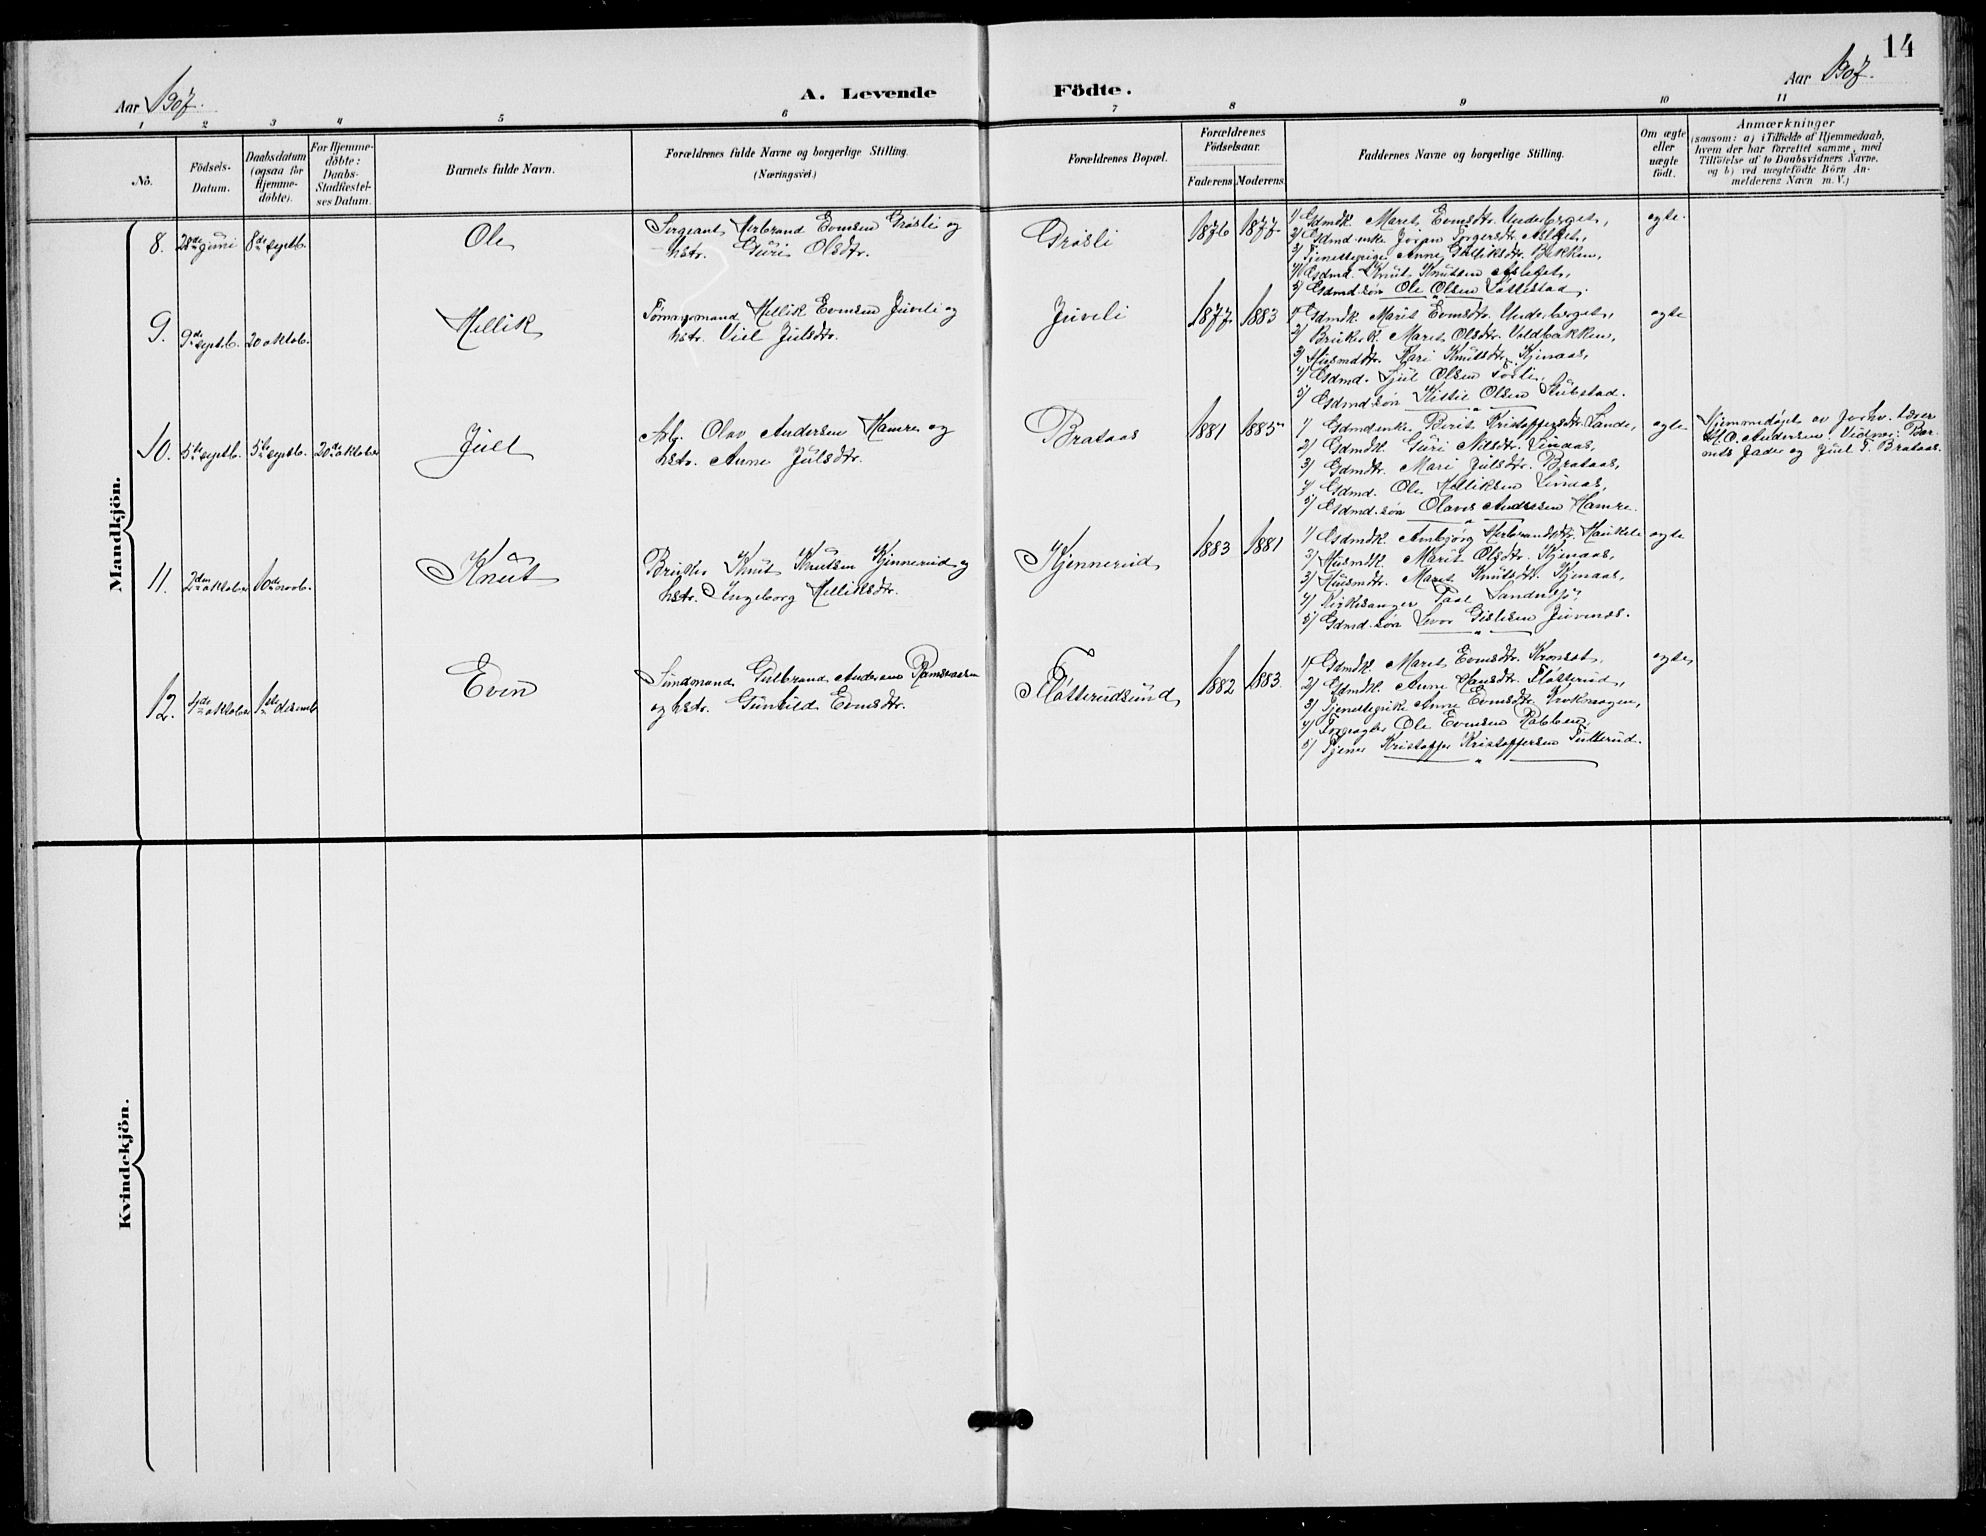 14
Aar 1907.
A. Levende
Födte.
Aar 1907.
1 2 3 4 5 6 7 8 9 10 11
No.
Födsels-
Datum.
Daabsdatum
(ogsaa for
Hjemme-
döbte).
For Hjemme-
döbte:
Daabs-
Stadfæstel-
ses Datum.
Barnets fulde Navn.
Forældrenes fulde Navne og borgerlige Stilling.
(Næringsvei.)
Forældrenes Bopæl.
Forældrenes
Födselsaar.
Faderens. Moderens.
Faddernes Navne og borgerlige Stilling.
Om ægte
eller
uægte
födt.
Anmærkninger
(saasom: a) i Tilfælde af Hjemmedaab,
hvem der har forrettet samme, med
Tilföielse af to Daabsvidners Navne.
og b) ved uægtefödte Börn An-
melderens Navn m. V.)
Mandkjön.
8. 28de juni 8de septb. Ole
Sergeant Herbrand Evensen Grøsli og
hstr. Guri Olsdtr.
Grøsli 1876 1877
1/ Gdmdk. Marit Evensdtr. Underberget,
2/ Gdmd.enke Joran Torgersdtr. Aslefet,
3/ Tjenestepige Anne Gulliksdtr. Bakken,
4/ Gdmd. Knut Knutsen Aslefet,
5/ Gdmd.søn Ole Olsen
ægte.
9. 9de septb. 20 oktob. Hellik
Tømmermand Hellik Evensen Juveli og
hstr. Viel Julsdtr.
Juveli 1877 1883
1/ Gdmdk. Marit Evensdtr. Underberget,
2/ Bruksk. Marit Olsdtr. Voldbakken,
3/ Husmdtr. Kari Knutsdtr. Kjenaas,
4/ Gdmd. Juel Olsen
5/ Gdmd.søn Kittil Olsen Skubstad.
ægte
10. 5te septb. 5te septb. 20de oktober Juel
Arb. Olav Andersen Hamre og
hstr. Anne Julsdtr.
Brataas 1881 1885
1/ Gdmd.enke. Birit Kristoffersdtr. Sande,
2/ Gdmdk. Guri Nilsdtr. Linaas,
3/ Gdmdtr. Mari Julsdtr. Brataas,
4/ Gdmd. Ole Helliksen Linaas,
5/ Gdmd.søn Olaves Andersen Hamre.
ægte
Hjemmedøpt av forhv. lærer
H. O. Andersen. Vidner: Bar-
nets fader og Juel T. Brataas.
11. 2den oktober 10de novb. Knut
Bruker Knut Knutsen Kjennerud og
hstr. Ingeborg Helliksdtr.
Kjennerud 1883 1881
1/ Gdmdk. Ambjørg Herbrandsdtr.
2/ Husmdk. Marit Olsdtr. Kjenaas,
3/ Husmdtr. Marit Knutsdtr. Kjenaas,
4/ Kirkesanger Paal
5/ Gdmd.søn Gislesen Juvenes.
ægte
12. 4de oktober 1ste desemb. Even
Sundmand Gulbrand Andersen
og hstr. Gunhild Evensdtr.
Fløtterudsund 1882 1883.
1/ Gdmdk. Marit Evensdtr.
2/ Gdmdk. Anne Hansdtr. Fløtterud,
3/ Tjenestepike Anne Evensdtr. Kroksvogen,
4/ Forpagter Ole Evensen Rabben,
5/ Tjener Kristoffer Kristoffersen Tufterud.
ægte
Kvindekjön.